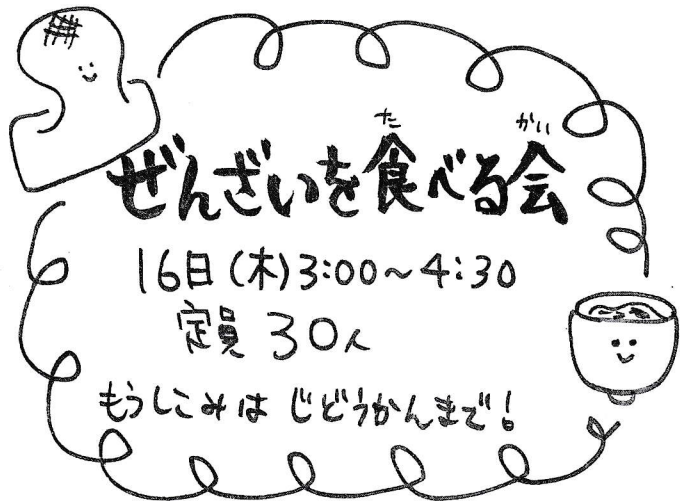 ぜんざいを食べる会
たかい
16日(木)3:00~4:30
定員 30人
もうしこみは じどうかんまで!